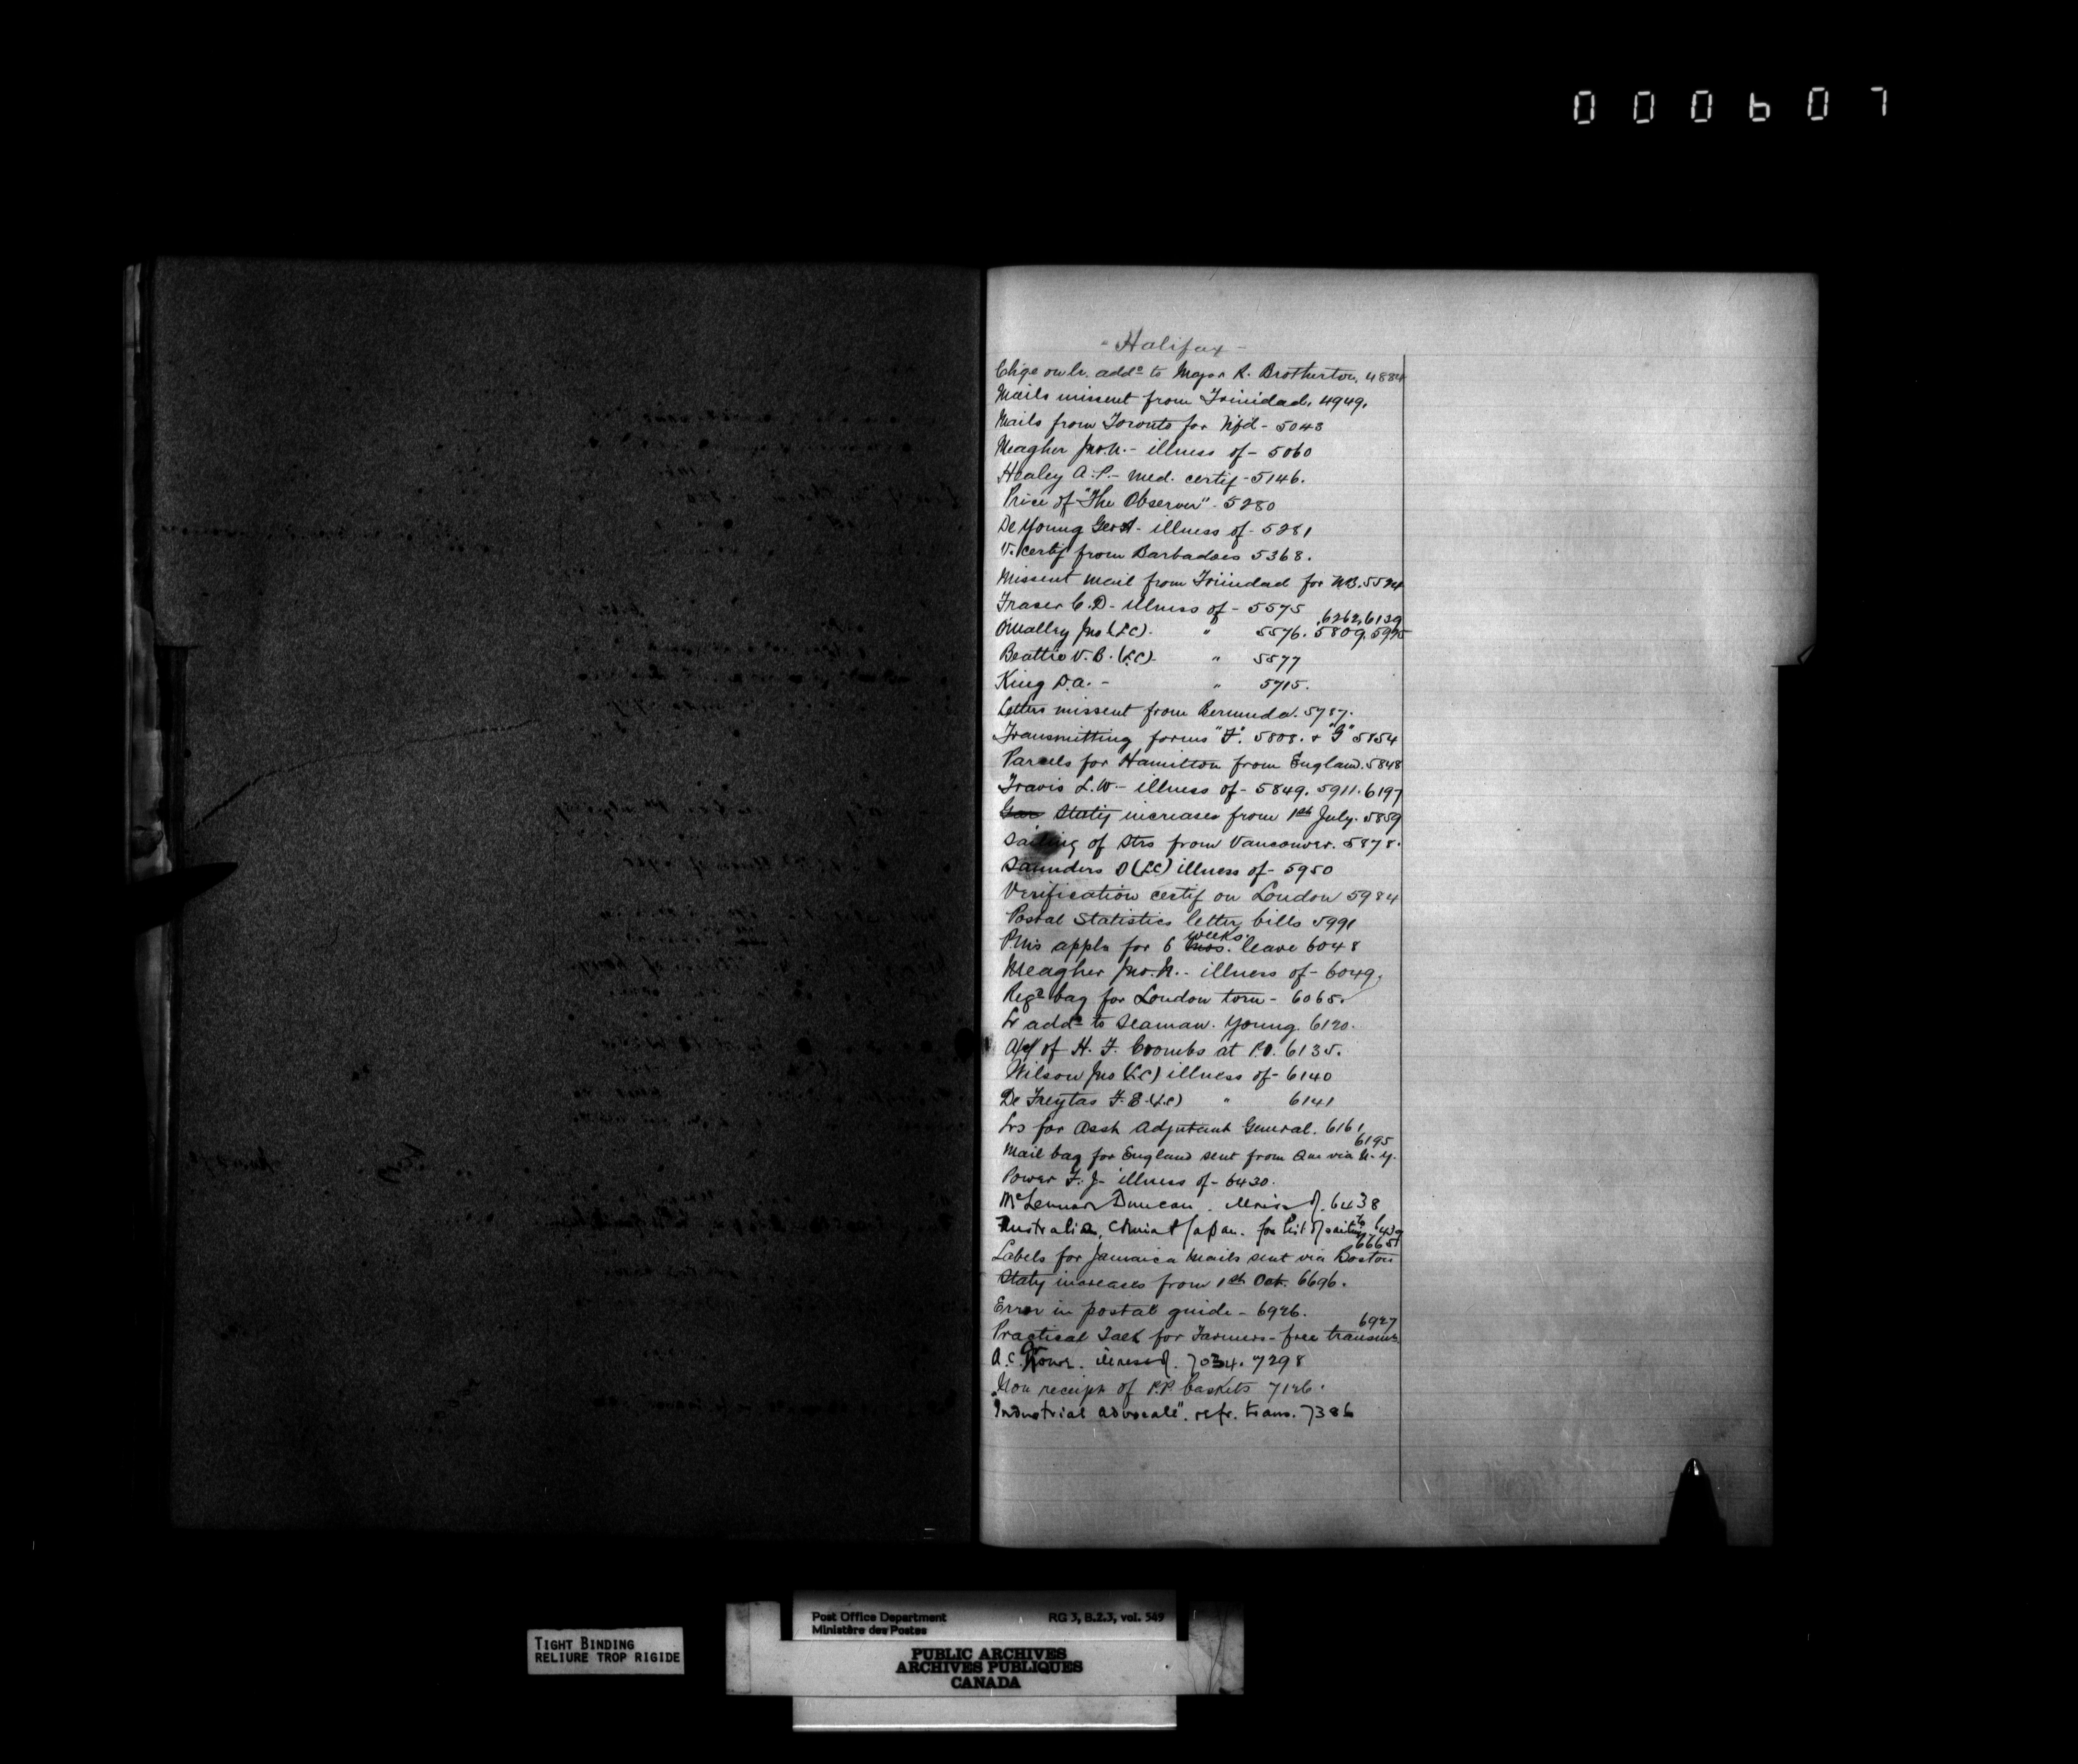 000607
- Halifax -
Chge on lr. addd to Major R. Brotherton, 4884
Mails missent from Trinidad. 4949.
Mails from Toronto for Nfd - 5043
Meagher Jno. N. - illness of - 5060
Healey A. P. - med. certif - 5146.
Price of "The Observer" - 5280
De Young Geo A - illness of - 5281
V. certif from Barbadoes 5368.
Missent mail from Trinidad for N.B. 5524
Fraser C. D - illness of - 5575
6262, 6139
O'Malley Jno (LC). " 5576. 5809. 5925
Beattie V. B. (LC). " 5577
King D. A. - " 5715.
Letters missent from Bermuda. 5787.
Transmitting forms "F". 5808. & "G" 5854
Parcels for Hamilton from England. 5848
Travis L. W. - illness of - 5849. 5911. 6197
Staty increases from 1st July. 5859
Sailing of Strs from Vancouver. 5878.
Saunders O (LC) illness of - 5950
Verification certif on London 5984
Postal Statistics letter bills 5991
weeks.
P.M's appln for 6 mos. leave 6048
Meagher Jno. N. - illness of - 6049.
Regd bag for London torn - 6065.
Lr addd to Seaman. Young. 6120.
A/c of H. F. Coombs at P.O. 6135.
Wilson Jno (LC) illness of - 6140
De Freytas F. E. (LC) " 6141
Lrs for Asst Adjutant General. 6161
6195
Mail bag for England sent from Que via N. Y.
Power F. J - illness of - 6430.
McLennan Duncan. illness of. 6438
Australia, China & Japan. for list of sailings to 6439
6665
Labels for Jamaica Mails sent via Boston
Staty increases from 1st Oct. 6696.
Error in postal guide - 6926.
6927
Practical Talk for Farmers - free transmn
A. C. illness of. 7034. 7298
Non receipt of P.P. baskets 7126.
"Industrial Advocate". refr. trans. 7386
TIGHT BINDING
RELIURE TROP RIGIDE
Post Office Department RG 3, B.2.3, vol. 549
Ministère des Postes
PUBLIC ARCHIVES
ARCHIVES PUBLIQUES
CANADA